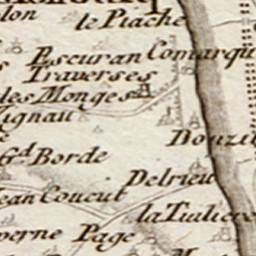 le Piache
Escuran Comarqu
Traverses
des Monges
Vignau
Douzil
Gd Borde
Delrieu
Jean Coucut
la Tiuliere
Page